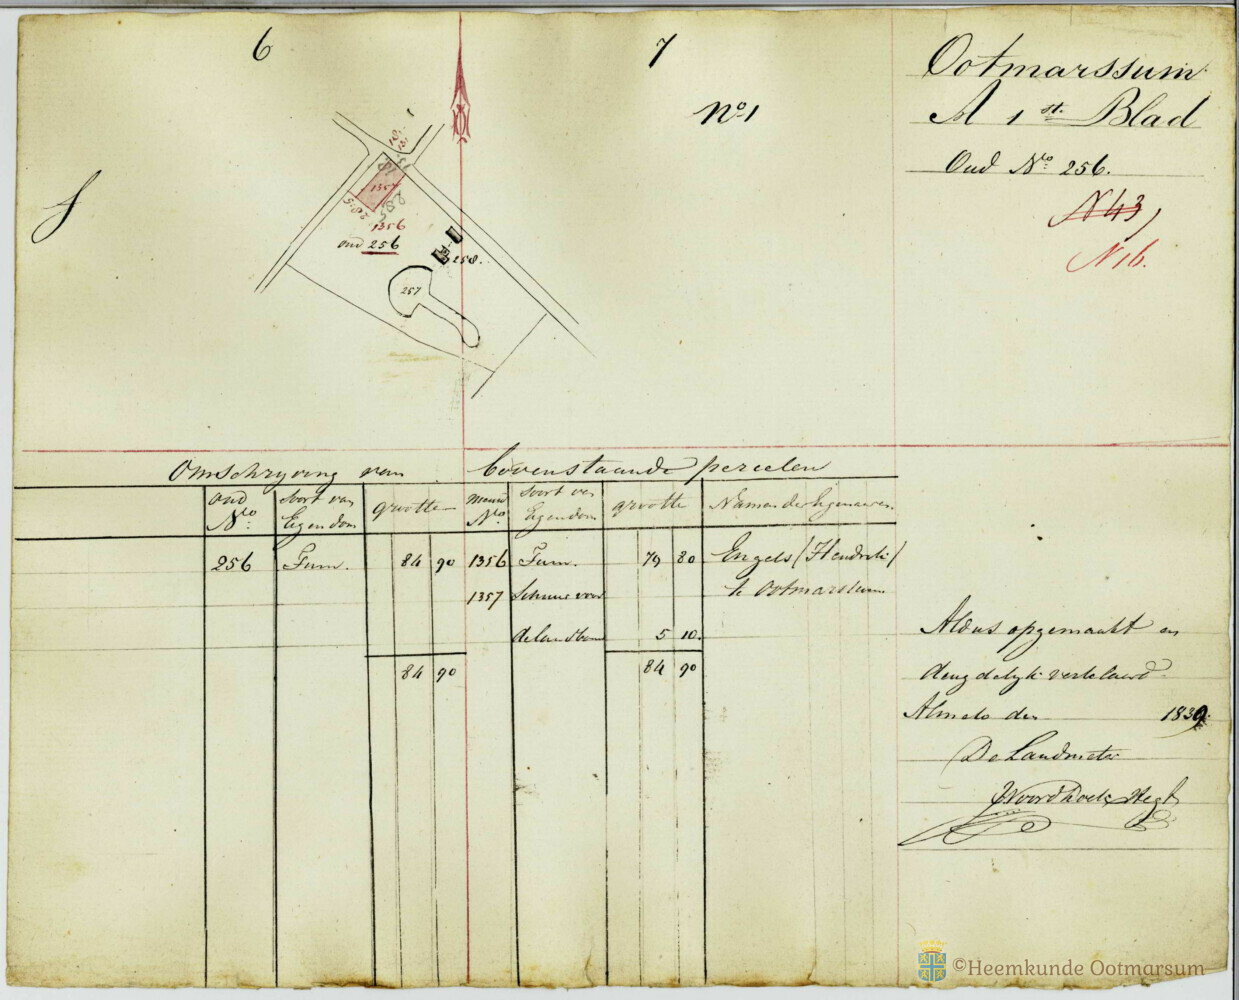 6
7
Ootmarssum
A 1st Blad
No 1
Oud No: 256.
N 43,
N 16.
1357
28.5
285
1356
oud 256
258.
257
Omschryving van bovenstaande perceelen
oud No: soort van Eigendom grootte nieuw No: soort van Eigendom grootte Namen der Eigenaren
256 Tuin. 84 90 1356 Tuin. 79 80 Engels (Hendrik)
1357 Schuur voor te Ootmarssum
de landbouw 5 10.
84 90 84 90
Aldus opgemaakt en
deugdelyk verklaard
Almelo den 1839.
De Landmeter
Noordhoek Hegt
©Heemkunde Ootmarsum